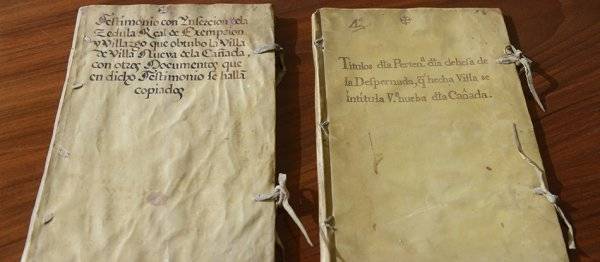 Testimonio con Ynsercion dela
Zedula Real de Exempcion
y Villazgo que obtubo la Villa
de Villa Nueva de la Cañada,
con otros Documentos que
en dicho Testimonio se hallan
copiados
Titulos dla Perten.ª dla dehesa de
la Despernada, q̃ hecha Villa se
intitula V.ª nueba dla Cañada.